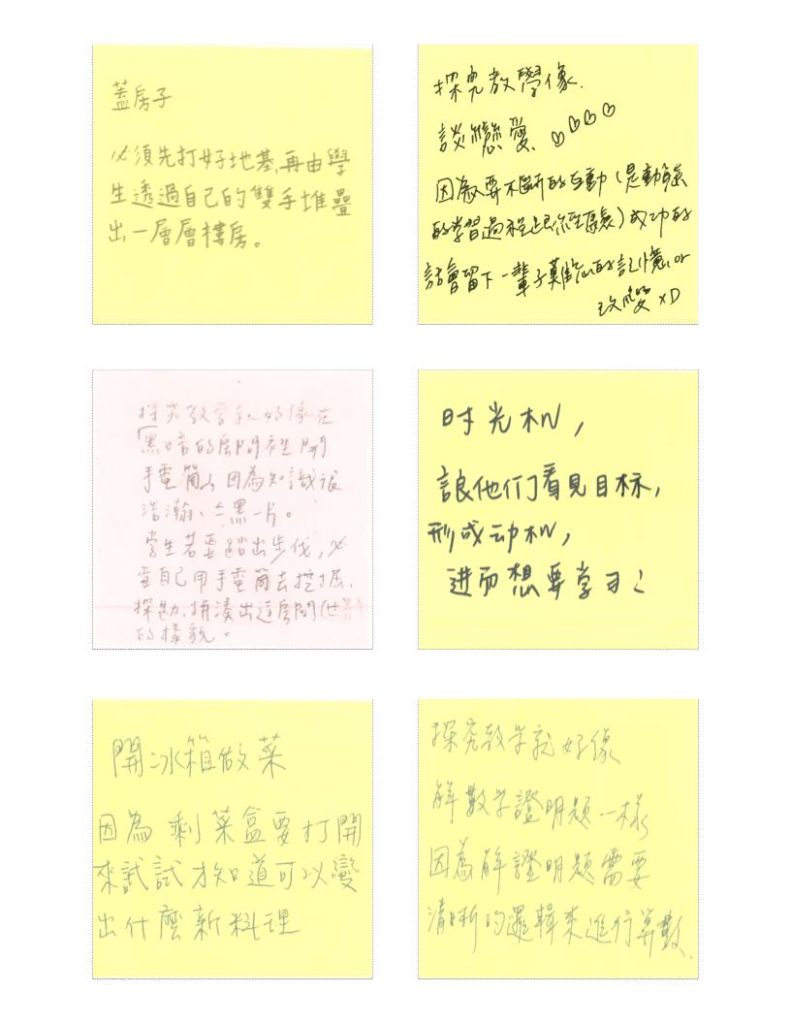 蓋房子
必須先打好地基,再由學
生透過自己的雙手堆疊
出一層層樓房。
探究教學像
談戀愛
因為要不斷的互動(是動態
的學習過程與經驗)成功的
話會留下一輩子難忘的記憶or
改變XD
探究教學就好像在
「黑暗的房間裡開
手電筒」因為知識很
浩瀚、黑一片。
學生若要踏出步伐,必
需自己用手電筒去挖掘、
探勘、拼湊出這房間(世界)
的樣貌。
时光机,
讓他们看見目标,
形成动机,
进而想要学习
開冰箱做菜
因為剩菜盒要打開
來試試才知道可以變
出什麼新料理
探究教学就好像
解數学證明題一樣
因為解證明題需要
清晰的邏輯來進行算數.